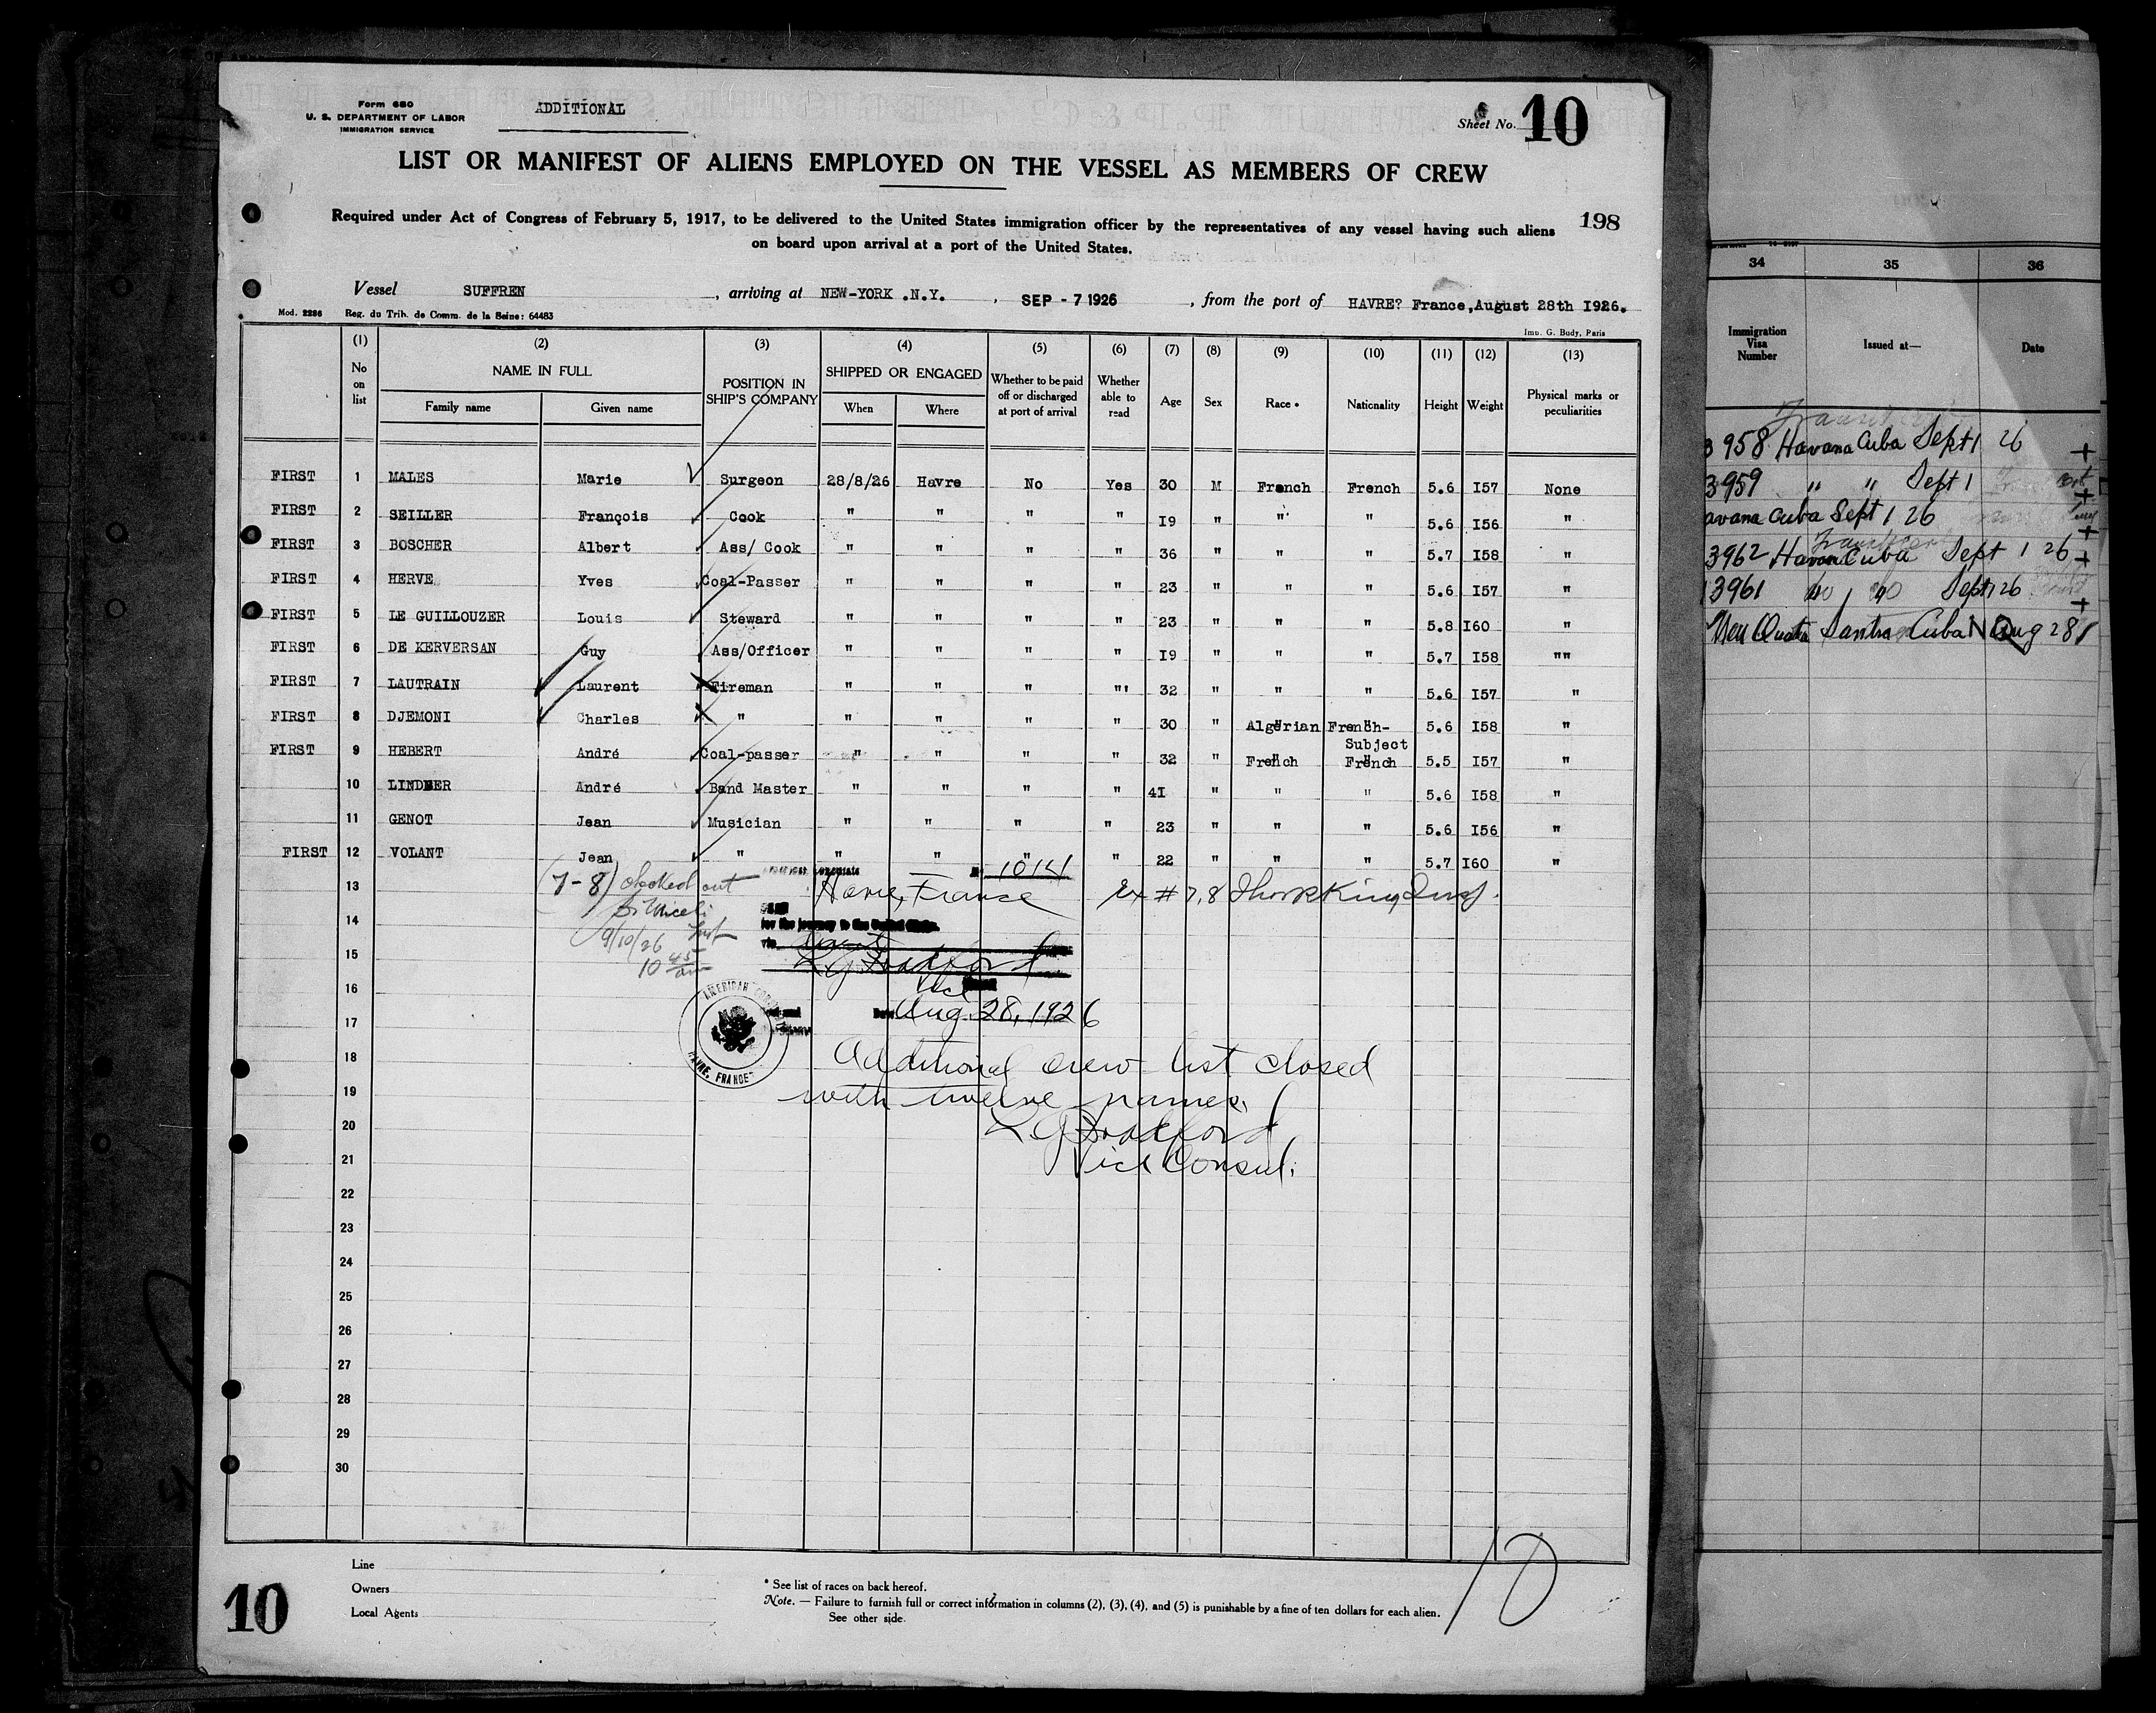 Form 680
U. S. DEPARTMENT OF LABOR
IMMIGRATION SERVICE
ADDITIONAL
Sheet No. 10
LIST OR MANIFEST OF ALIENS EMPLOYED ON THE VESSEL AS MEMBERS OF CREW
Required under Act of Congress of February 5, 1917, to be delivered to the United States immigration officer by the representatives of any vessel having such aliens
on board upon arrival at a port of the United States.
198
Vessel SUFFREN, arriving at NEW-YORK .N.Y., SEP - 7 1926, from the port of HAVRE? France,August 28th I926.
Mod. 2286 Reg. du Trib. de Comm. de la Seine: 64483
Imp. G. Budy, Paris
(1) (2) (3) (4) (5) (6) (7) (8) (9) (10) (11) (12) (13)
No on list NAME IN FULL Family name Given name POSITION IN SHIP'S COMPANY SHIPPED OR ENGAGED When Where Whether to be paid off or discharged at port of arrival Whether able to read Age Sex Race * Nationality Height Weight Physical marks or peculiarities
FIRST 1 MALES Marie Surgeon 28/8/26 Havre No Yes 30 M French French 5.6 I57 None
FIRST 2 SEILLER François Cook " " " " I9 " " " 5.6 I56 "
FIRST 3 BOSCHER Albert Ass/ Cook " " " " 36 " " " 5.7 I58 "
FIRST 4 HERVE Yves Coal-Passer " " " " 23 " " " 5.6 I57 "
FIRST 5 LE GUILLOUZER Louis Steward " " " " 23 " " " 5.8 I60 "
FIRST 6 DE KERVERSAN Guy Ass/Officer " " " " I9 " " " 5.7 I58 ""
FIRST 7 LAUTRAIN Laurent Fireman " " " "' 32 " " " 5.6 I57 "
FIRST 8 DJEMONI Charles " " " " " 30 " Algerian French-Subject 5.6 I58 "
FIRST 9 HEBERT André Coal-passer " " " " 32 " French French 5.5 I57 "
10 LINDNER André Band Master " " " " 4I " " " 5.6 I58 "
11 GENOT Jean Musician " " " " 23 " " " 5.6 I56 "
FIRST 12 VOLANT Jean " " " " " 22 " " " 5.7 I60 "
(7-8) checked out
9/10/26
10 45 am
No 1014
Havre, France
Ex # 7, 8
for the journey to the United States.
via
L G Bradford
Vice
Date Aug. 28, 1926
AMERICAN CONSULATE
HAVRE, FRANCE
Additional crew list closed
with twelve names.
L G Bradford
Vice Consul.
13
14
15
16
17
18
19
20
21
22
23
24
25
26
27
28
29
30
10
Line
Owners
Local Agents
10
* See list of races on back hereof.
Note. — Failure to furnish full or correct information in columns (2), (3), (4), and (5) is punishable by a fine of ten dollars for each alien.
See other side.
34 35 36
Immigration Visa Number Issued at— Date
3958 Havana Cuba Sept 1 26
3959 " " Sept 1
avana Cuba Sept 1 26
3962 Havana Cuba Sept 1 26
3961 do do Sept 1 26
Cuba Aug 28